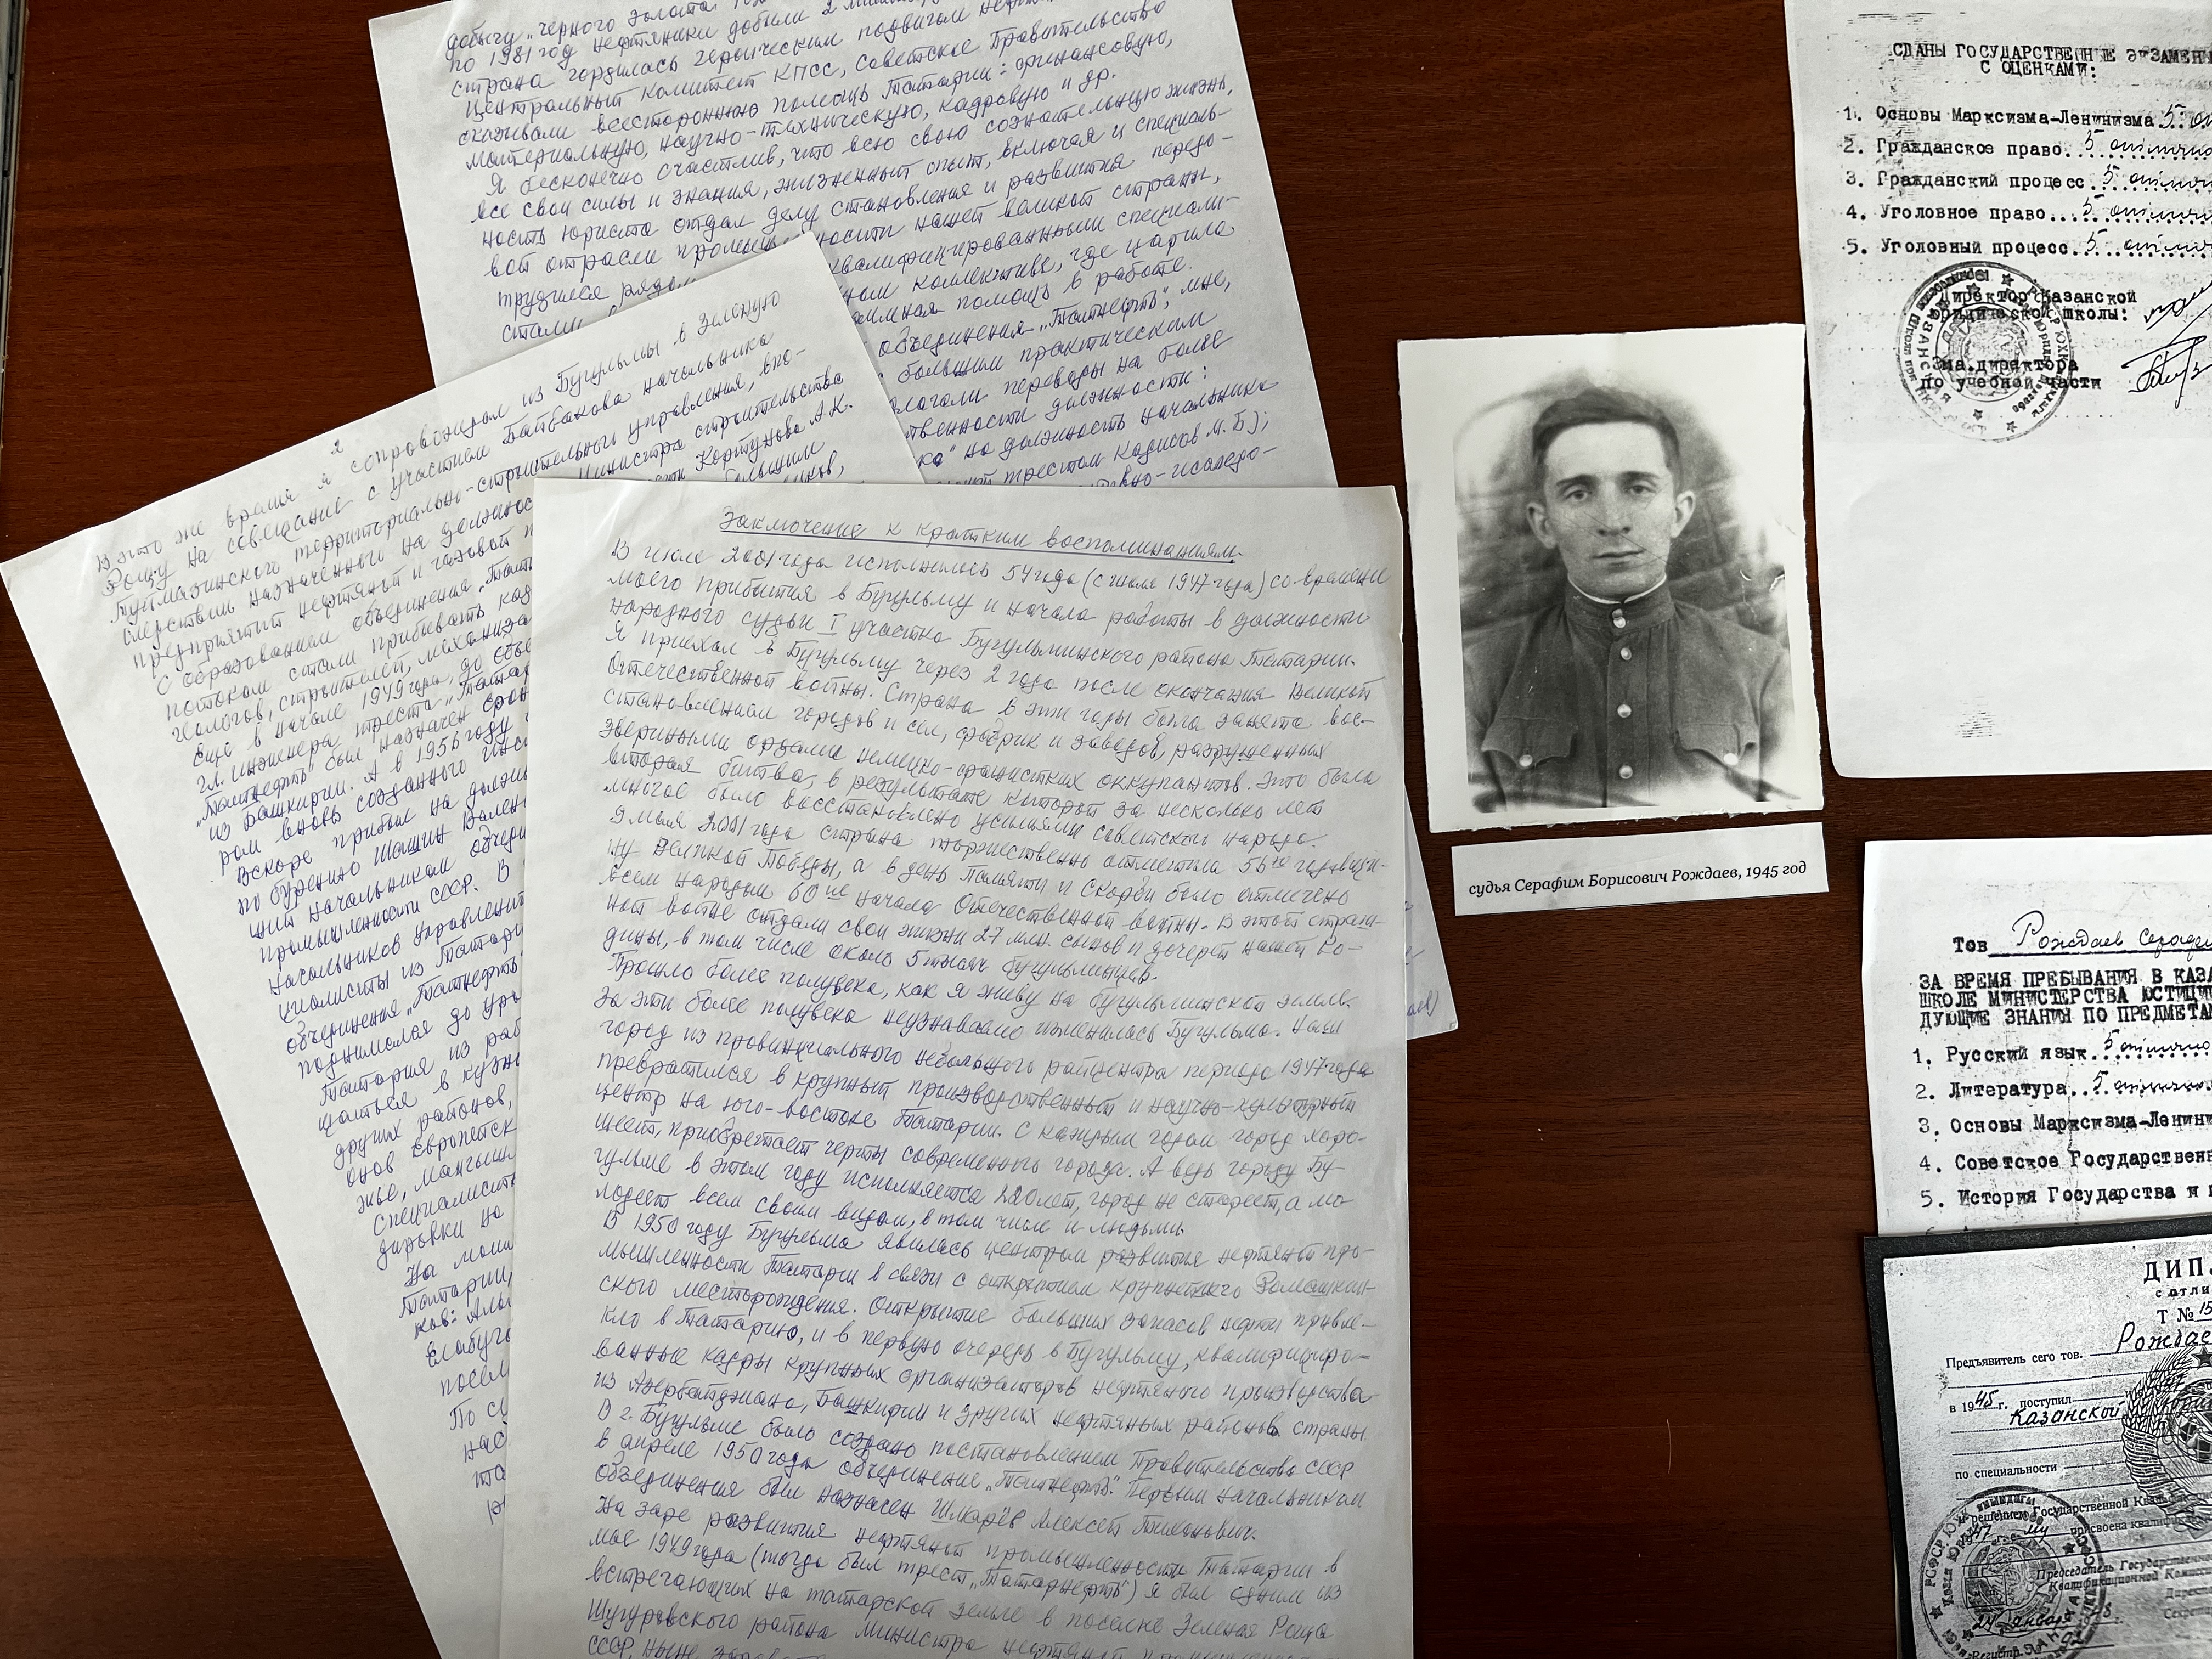 добычу „черного золота"
по 1981 год нефтяники добыли 2
страна гордилась героическим подвигом
Центральный Комитет КПСС, Советское Правительство
оказывали всестороннюю помощь Татарии: финансовую,
материальную, научно-техническую, кадровую и др.
Я бесконечно счастлив, что всю свою сознательную жизнь,
все свои силы и знания, жизненный опыт, включая и специаль-
ность юриста отдал делу становления и развития передо-
вой отрасли промыш ности нашей великой страны,
трудился рядом квалифицированными специали-
стами, ном коллективе, где царила
аимная помощь в работе.
объединения „Татнефть", мне,
с большим практическим
лагали переводы на более
твенности должности:
ка" на должность начальника
трестом Кадисов М.Б);
но-исследо-
2
В это же время я сопровождал из Бугульмы в Зеленую
Рощу на совещание с участием Байбакова начальника
Туймазинского территориально-строительного управления, впо-
следствии назначенного на должнос министра строительства
предприятий нефтяной и газовой п сти Кортунова А.К.
С образованием объединения „Тат большим
потоком стали прибывать кад
геологов, строителей, механиза
Еще в начале 1949 года, до объе
гл. инженера треста „Татар
„Татнефть" был назначен
из Башкирии. А в 1956 году
ром вновь созданного инс
Вскоре прибыл на должн
по бурению Шашин Вален
ший начальником
промышленности СССР. В
начальников управлени
циалисты из Татари
объединения „Татнефть"
поднимался до
Татария из ра
щаться в кузн
других районов,
онов Европейск
жье, Мангыш
Специалист
дировки на
На мои
Татарии,
ков: Аль
Елабуг
посел
По с
нас
та
Заключение к кратким воспоминаниям.
В июле 2001 года исполнилось 54 года (с июля 1947 года) со времени
моего прибытия в Бугульму и начала работы в должности
народного судьи I участка Бугульминского района Татарии.
Я приехал в Бугульму через 2 года после окончания Великой
Отечественной войны. Страна в эти годы была занята вос-
становлением городов и сел, фабрик и заводов, разрушенных
звериными ордами немецко-фашистких оккупантов. Это была
вторая битва, в результате которой за несколько лет
многое было восстановлено усилиями советского народа.
9 мая 2001 года страна торжественно отметила 56ую годовщи-
ну Великой Победы, а в день Памяти и Скорби было отмечено
всем народом 60ие начала Отечественной войны. В этой страш-
ной войне отдали свои жизни 27 млн. сынов и дочерей нашей Ро-
дины, в том числе около 5 тысяч бугульминцев.
Прошло более полувека, как я живу на бугульминской земле.
За эти более полувека неузнаваемо изменилась Бугульма. Наш
город из провинциального небольшого райцентра периода 1947 года
превратился в крупный производственный и научно-культурный
центр на юго-востоке Татарии. С каждым годом город хоро-
шеет, приобретает черты современного города. А ведь городу Бу-
гульме в этом году исполняется 220 лет, город не стареет, а мо
лодеет всем своим видом, в том числе и людьми
В 1950 году Бугульма явилась центром развития нефтяной про-
мышленности Татарии в связи с открытием крупнейшего Ромашкин-
ского месторождения. Открытие больших запасов нефти привле-
кло в Татарию, и в первую очередь в Бугульму, квалифициро-
ванные кадры крупных организаторов нефтяного производства
из Азербайджана, Башкирии и других нефтяных районов страны
В г. Бугульме было создано постановлением Правительства СССР
в апреле 1950 года объединение „Татнефть". Первым начальником
объединения был назначен Шмарёв Алексей Тихонович.
На заре развития нефтяной промышленности Татарии в
мае 1949 года (тогда был трест „Татарнефть") я был одним из
встречающих на татарской земле в поселке Зеленая Роща
Шугуровского района Министра нефтяной
СССР, ныне
судья Серафим Борисович Рождаев, 1945 год
СДАНЫ ГОСУДАРСТВЕННЫЕ ЭКЗАМЕН
С ОЦЕНКАМИ:
1. Основы Марксизма-Ленинизма 5. от
2. Гражданское право. 5 отлично
3. Гражданский процесс 5 отлич
4. Уголовное право 5 отличн
5. Уголовный процесс 5 отлич
Директор Казанской
юридической школы:
Зам.директора
по учебной части
Тов Рождаев Сераф
ЗА ВРЕМЯ ПРЕБЫВАНИЯ В КАЗА
ШКОЛЕ МИНИСТЕРСТВА ЮСТИЦИ
ДУЮЩИЕ ЗНАНИЯ ПО ПРЕДМЕТА
1. Русский язык 5 отлично
2. Литература 5 отлично
3. Основы Марксизма-Ленини
4. Советское Государствен
5. История Государства и
ДИП
с отли
Т № 15
Рождае
Предъявитель сего тов.
в 1945 г. поступил
Казанской
по специальности
решением Государственной Квалиф
1947 г. присвоена квалиф
Председатель Государственной
Квалификационной Комисс
Директ
Секрет
24 января
Регистр. №